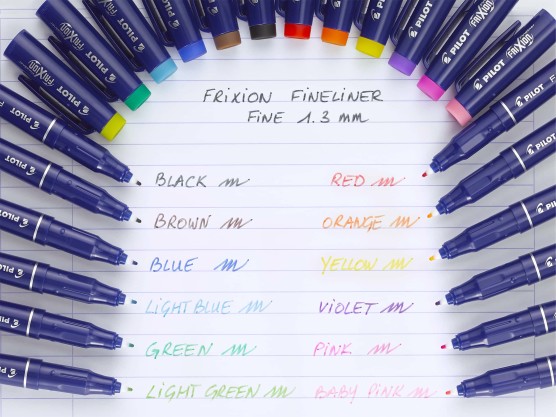 FRiXiON FiNELiNER
FiNE 1.3 mm
BLACK
BROWN
BLUE
LIGHT BLUE
GREEN
LIGHT GREEN
RED
ORANGE
YELLOW
ViOLET
PiNK
BABY PiNK
PILOT
FRIXION
PILOT
FRIXION
PILOT
PILOT
PILOT
FRIXION
PILOT
PILOT
PILOT
PILOT
PILOT
PILOT